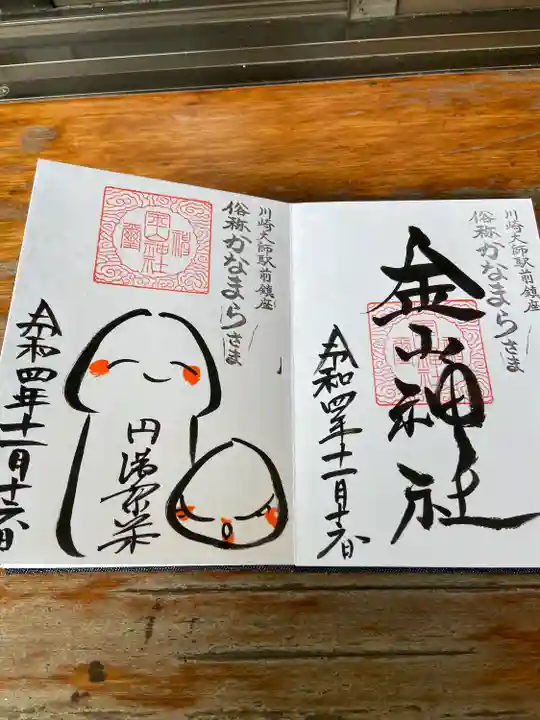 川崎大師駅前鎮座
俗称かなまらさま
金山神社
令和四年十一月十六日
川崎大師駅前鎮座
俗称かなまらさま
令和四年十一月十六日